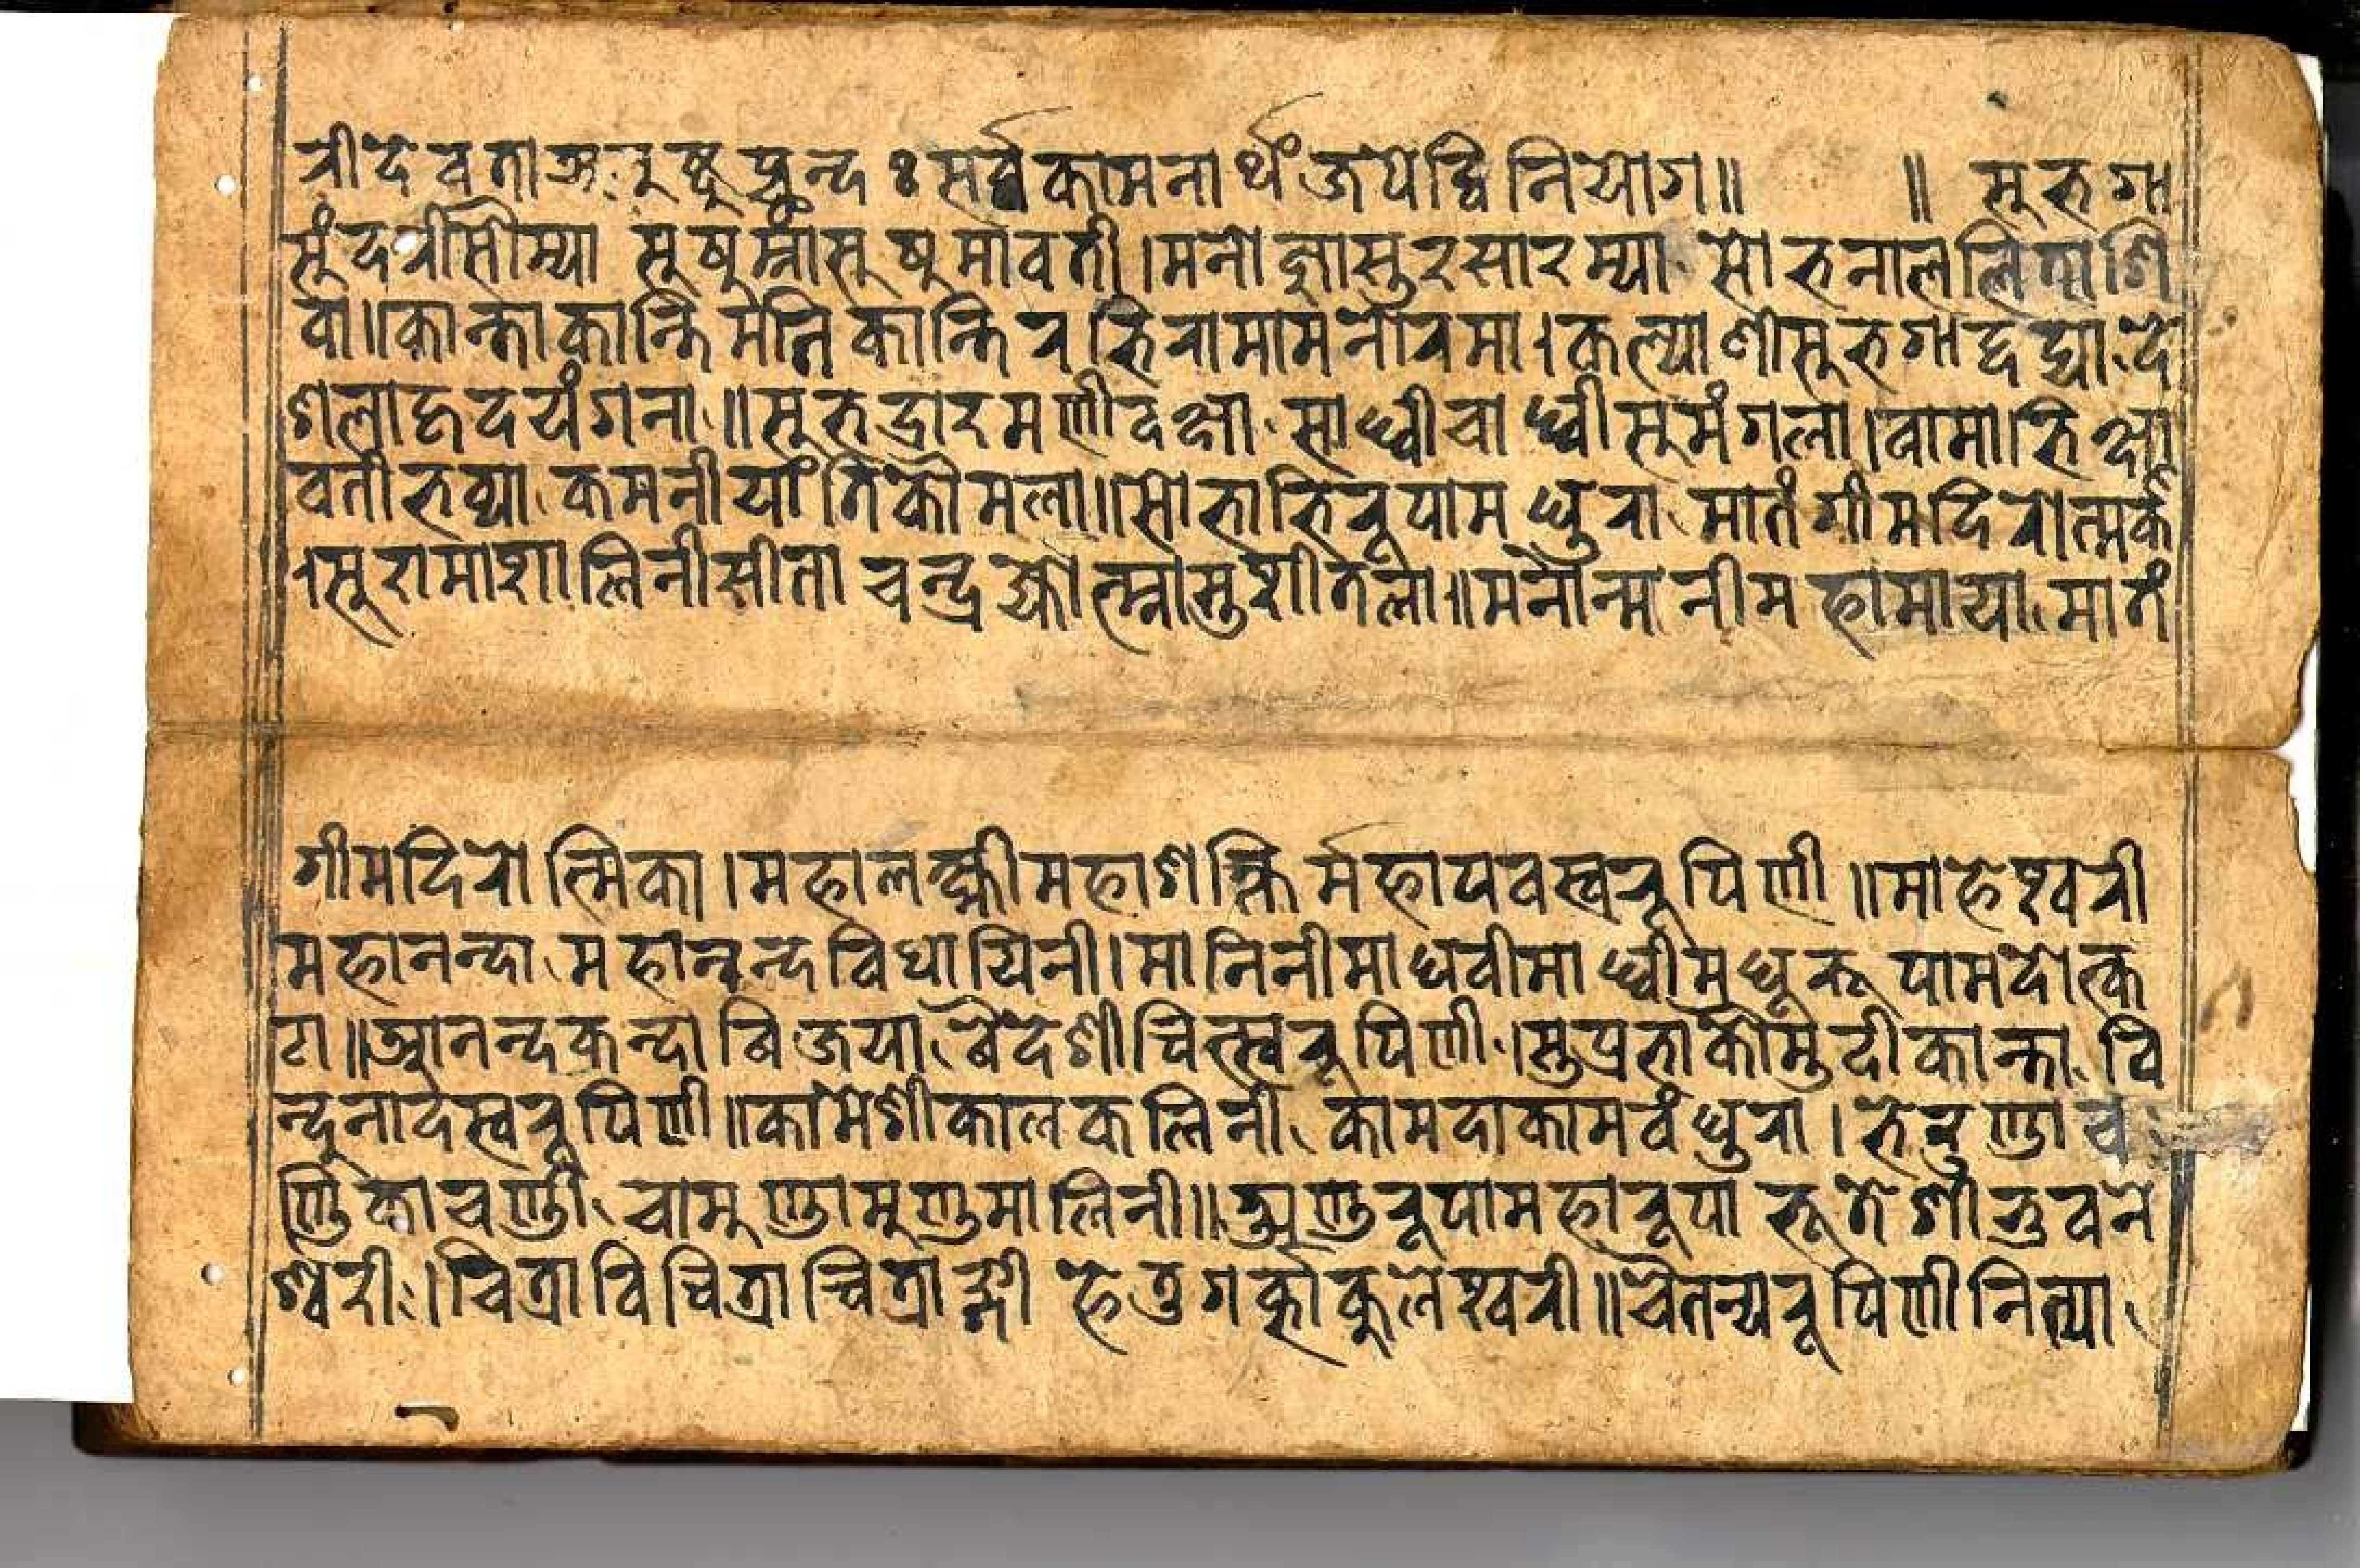 री देवता अनुष्टुप्छन्दः सर्वकामनार्थं जपे द्विनियोग॥ ॥ सूभगा
सुंदरीसौम्या सूषुम्नांसूषुमावती।मनोज्ञासुरसारम्या सोभनाललिताशि
वा॥कान्ताकान्तिमेतिकान्तिरभिरामामनोरमा।कल्याणीसूभगाहृद्या दे
शलाहृदयंगना॥सूभद्रारमणीदक्षा साध्वीचाध्वीसूमंगला।वामाभिक्षा
वतीभव्या कमनीयांतिकोमला॥सोभाभिरूपामधुरा मातंगीमदिरोत्मकी
।सूरामाशालिनीसीता चन्द्रज्योत्स्नासुशीतला॥मनोन्मनीमहामाया मातं
गीमदिरोत्मिका।महालक्ष्मीमहाशक्तिर्महापवस्वरूपिणी॥माहेश्वरी
महानन्दा महानन्दविधायिनी।मानिनीमाधवीमाध्वीमधूरूपामदोत्क
टा॥आनन्दकन्दा विजया वैदेशीचित्स्वरूपिणी।सुप्रभाकौमुदीकान्ता वि
न्दूनादस्वरूपिणी॥कामेशीकालकलिनी कामदाकामवंधुरा।भेरुण्डाच
ण्डिकाचण्डी चामुण्डामुण्डमालिनी॥अणुरूपामहारूपा भूतेशीभुवने
श्वरी।चित्राविचित्राचित्राङ्गी हेतुगर्काकूलेश्वरी॥चैतन्यरूपिणीनित्या